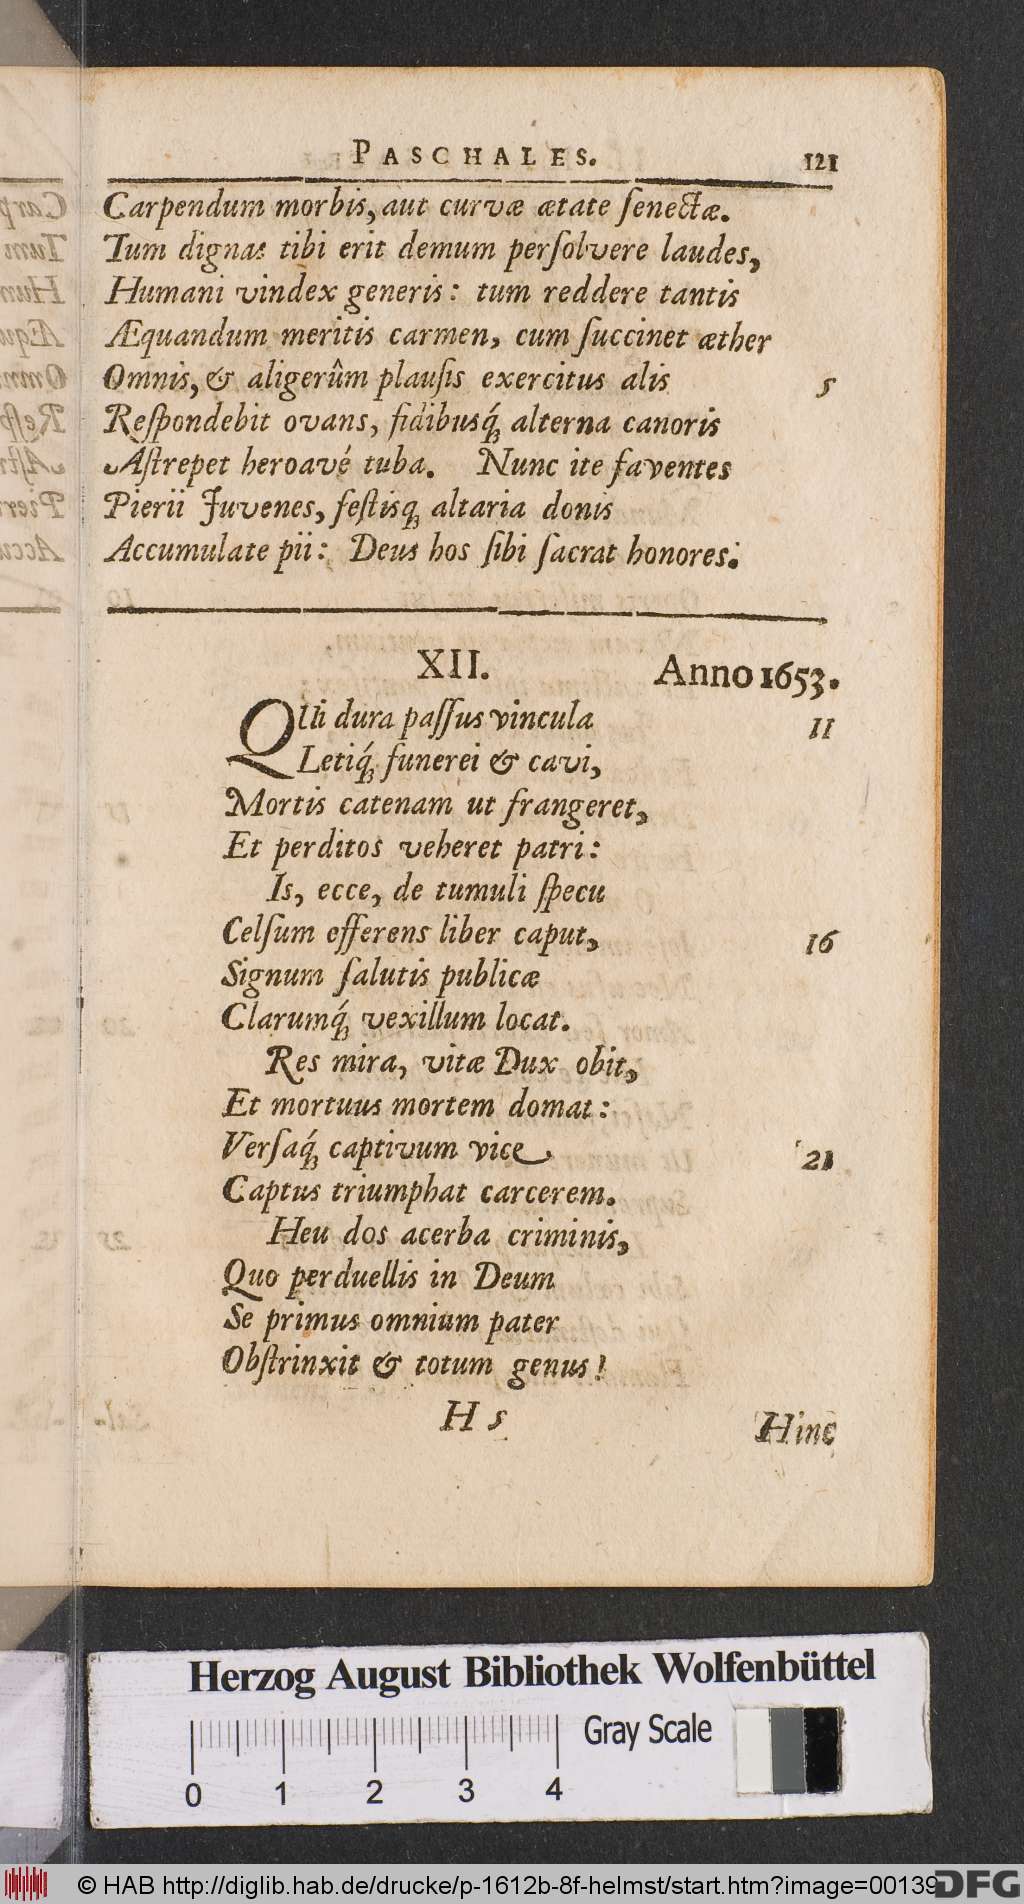 PASCHALES. 121
Carpendum morbis, aut curvæ ætate ſenectæ.
Tum dignas tibi erit demum perſolvere laudes,
Humani vindex generis: tum reddere tantis
Æquandum meritis carmen, cum ſuccinet æther
Omnis, & aligerûm plauſis exercitus alis 5
Reſpondebit ovans, fidibusq́; alterna canoris
Aſtrepet heroavé tuba. Nunc ite faventes
Pierii Juvenes, feſtisq; altaria donis
Accumulate pii: Deus hos ſibi ſacrat honores.
XII. Anno 1653.
QUi dura paſſus vincula 11
Letiq́; funerei & cavi,
Mortis catenam ut frangeret,
Et perditos veheret patri:
Is, ecce, de tumuli ſpecu
Celſum efferens liber caput, 16
Signum ſalutis publicæ
Clarumq́; vexillum locat.
Res mira, vitæ Dux obit,
Et mortuus mortem domat:
Verſaq́; captivum vice 21
Captus triumphat carcerem.
Heu dos acerba criminis,
Quo perduellis in Deum
Se primus omnium pater
Obſtrinxit & totum genus!
H 5 Hinc
Herzog August Bibliothek Wolfenbüttel
Gray Scale
0 1 2 3 4
© HAB http://diglib.hab.de/drucke/p-1612b-8f-helmst/start.htm?image=00139
DFG